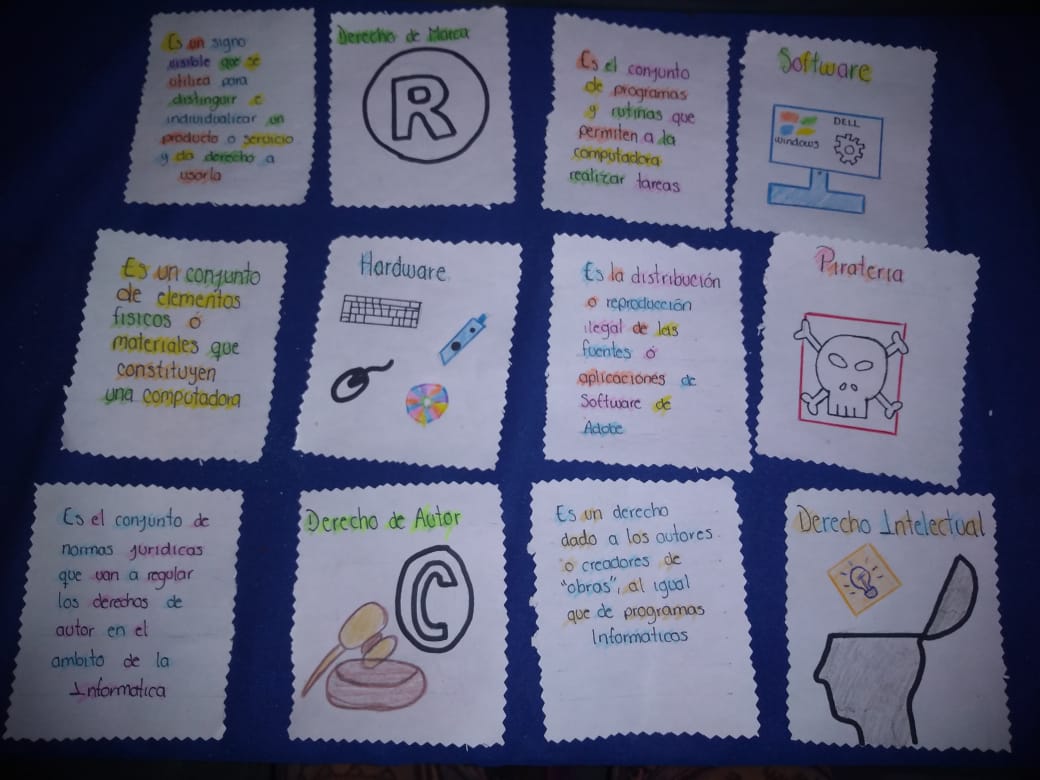 Es un signo
visible que se
utiliza para
distinguir e
individualizar un
producto o servicio
y da derecho a
usarla
Derecho de Marca
R
Es el conjunto
de programas
y rutinas que
permiten a la
computadora
realizar tareas
Software
DELL
windows
Es un conjunto
de elementos
físicos ó
materiales que
constituyen
una computadora
Hardware
Es la distribución
o reproducción
ilegal de las
fuentes ó
aplicaciónes de
Software de
Adobe
Piratería
Es el conjunto de
normas jurídicas
que van a regular
los derechos de
autor en el
ambito de la
Informatica
Derecho de Autor
C
Es un derecho
dado a los autores
o creadores de
"obras", al igual
que de programas
Informaticos
Derecho Intelectual